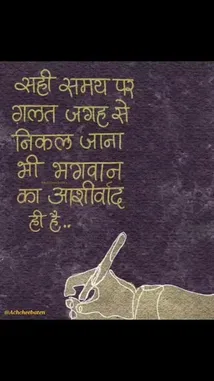 सही समय पर
ग़लत जगह से
निकल जाना
भी भगवान
का आशीर्वाद
ही है..
@Achchebaten